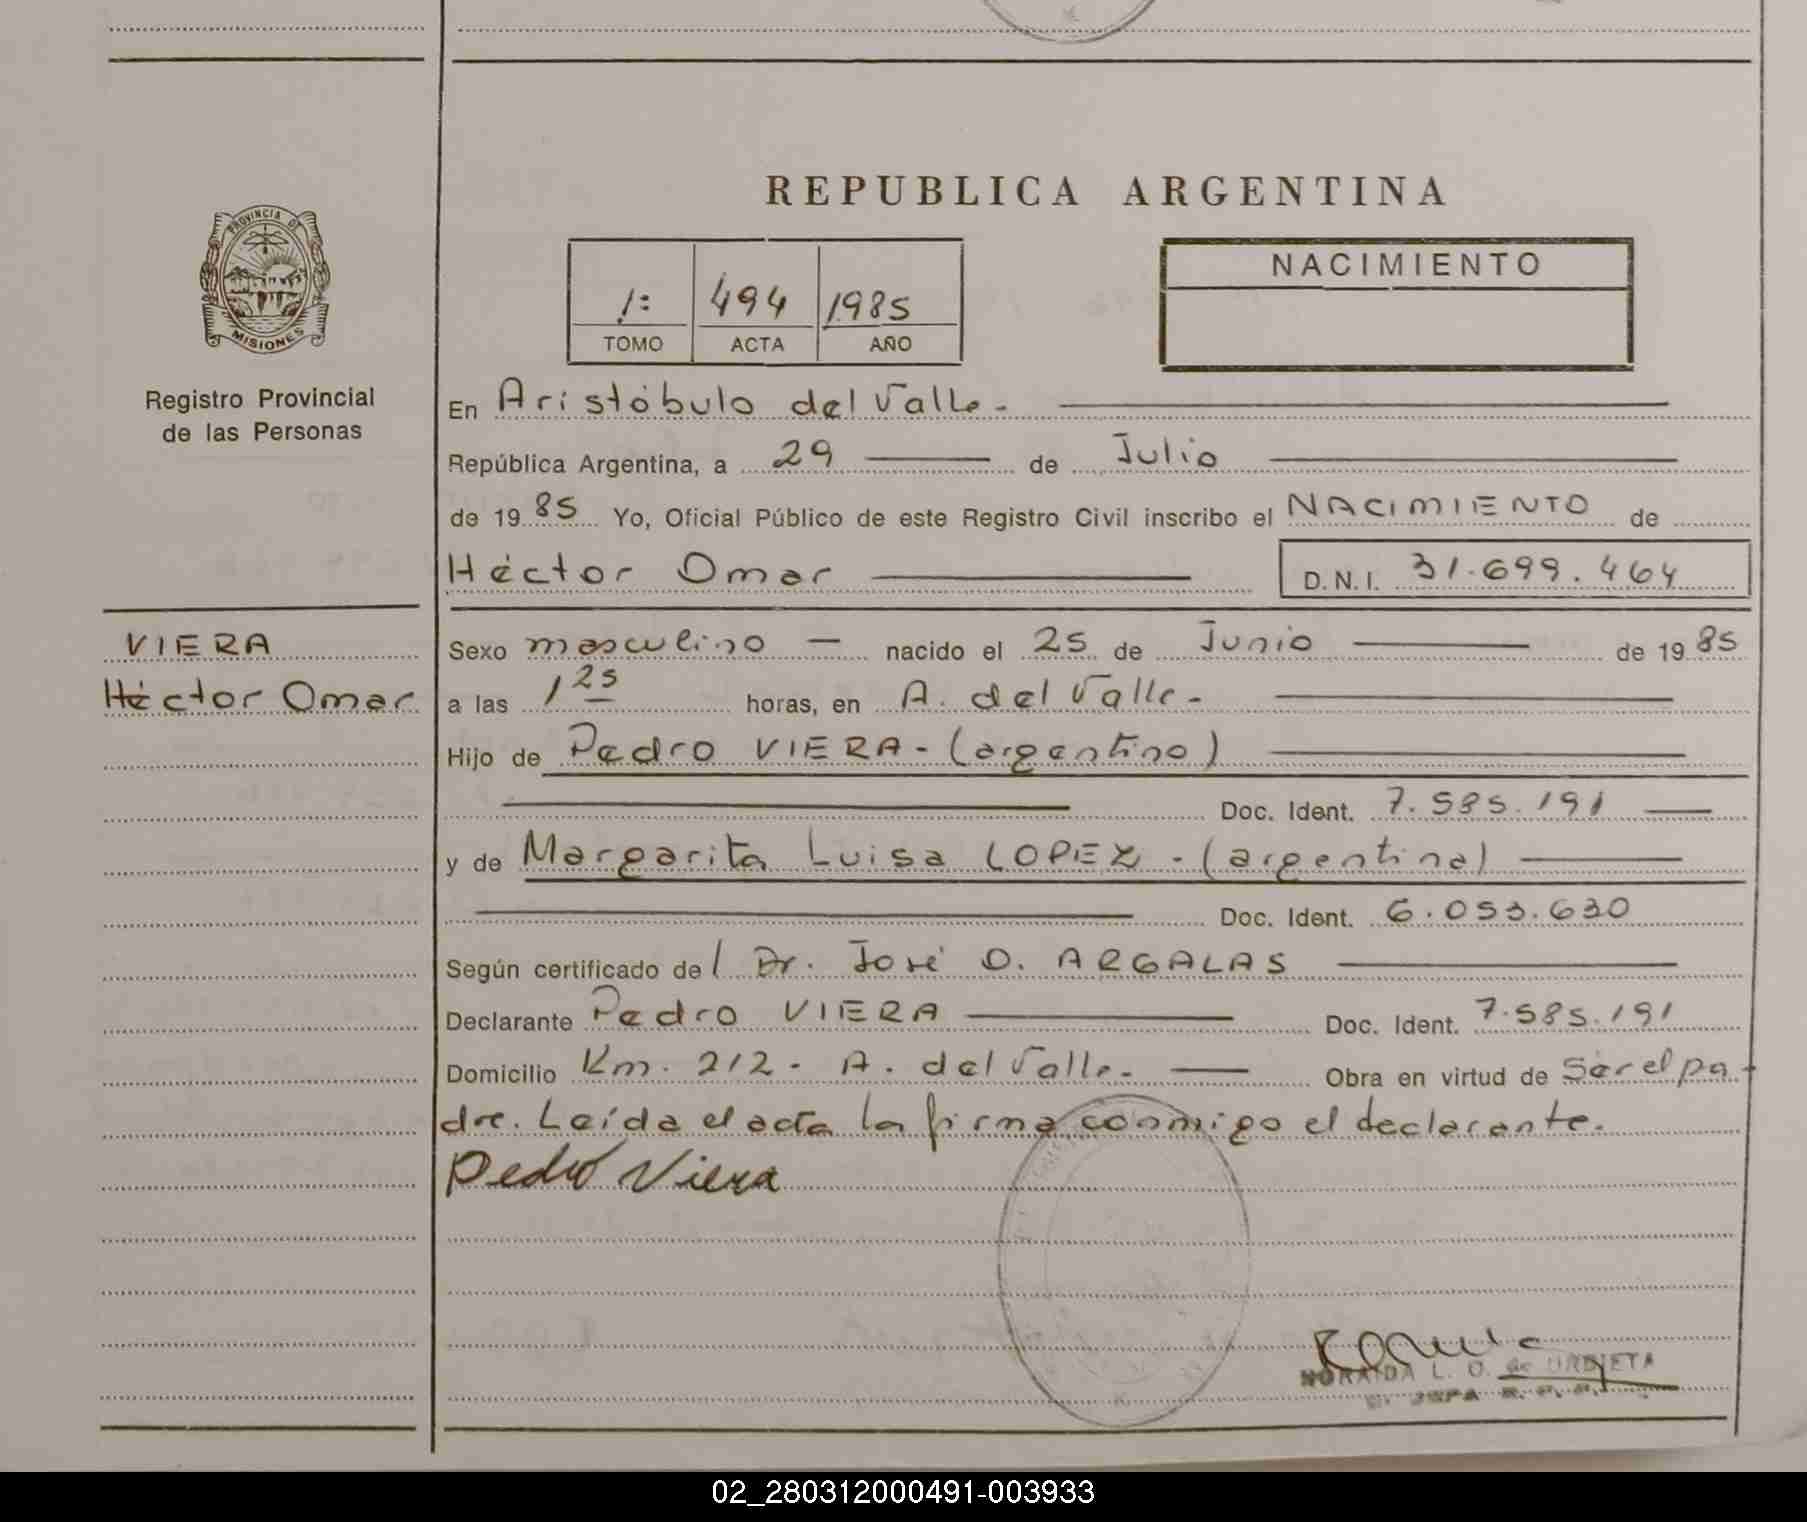 REPUBLICA ARGENTINA
PROVINCIA DE
MISIONES
Registro Provincial
de las Personas
1: 494 1985
TOMO ACTA AÑO
NACIMIENTO
En Aristóbulo del Valle.-
República Argentina, a 29 de Julio
de 1985 Yo, Oficial Público de este Registro Civil inscribo el NACIMIENTO de
Héctor Omar D.N.I. 31.699.464
VIERA
Héctor Omar
Sexo masculino nacido el 25 de Junio de 1985
a las 1 25 horas, en A. del Valle.-
Hijo de Pedro VIERA - (argentino)
Doc. Ident. 7.585.191
y de Margarita Luisa LOPEZ - (argentina)
Doc. Ident. 6.053.630
Según certificado del Dr. José O. ARGALAS
Declarante Pedro VIERA Doc. Ident. 7.585.191
Domicilio Km. 212 - A. del Valle.- Obra en virtud de ser el pa-
dre. Leída el acta la firma conmigo el declarante.
Pedro Viera
NORAIDA L. O. de URBIETA
JEFA R. P. P.
02_280312000491-003933